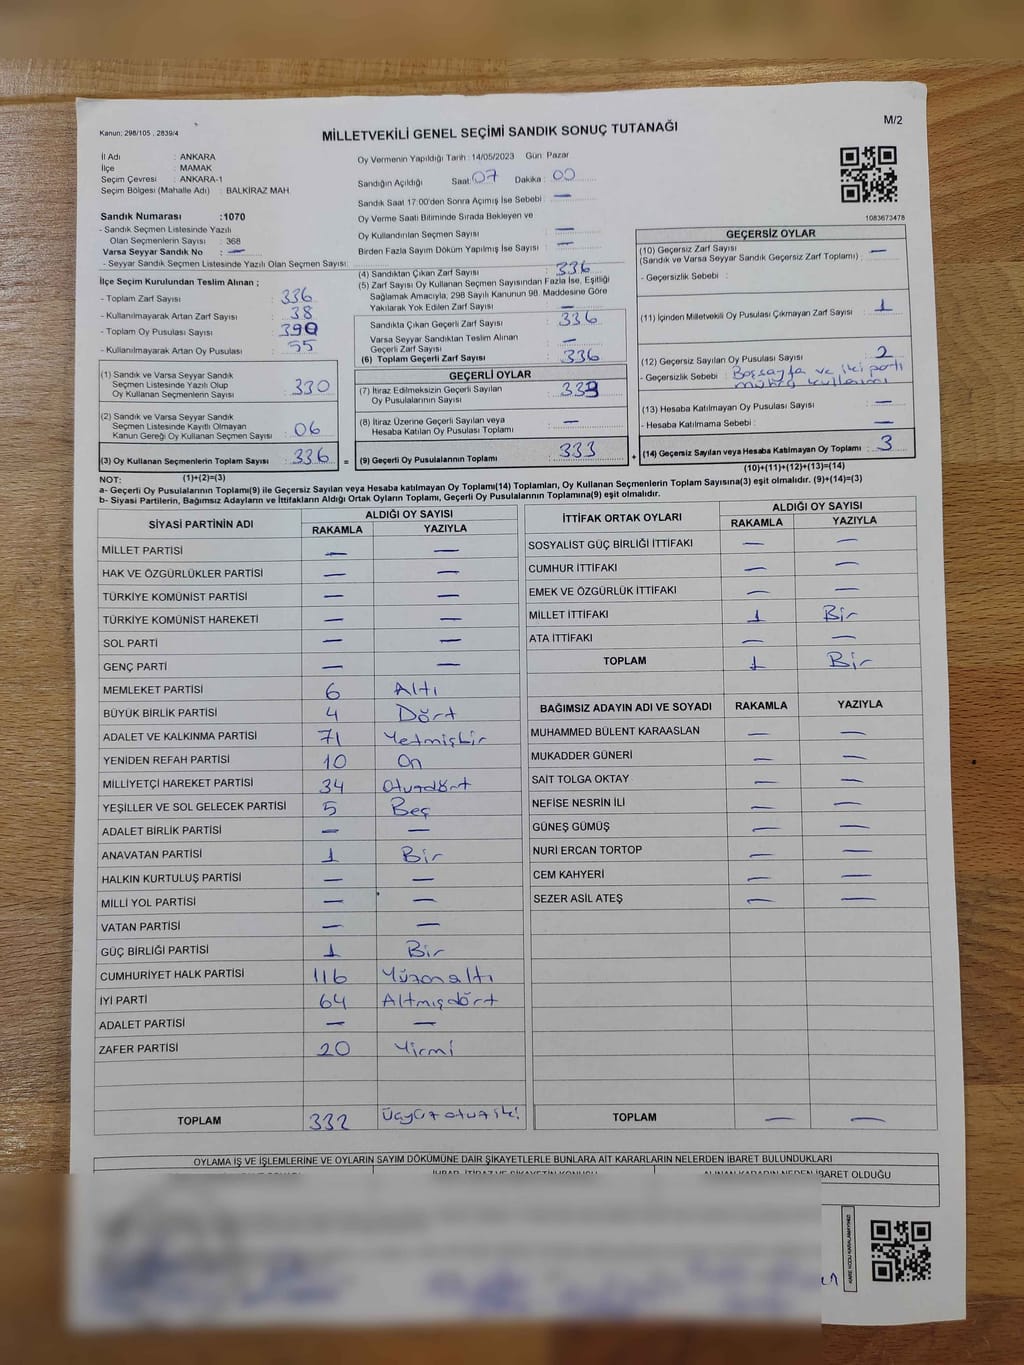 Kanun: 298/105 , 2839/4
MİLLETVEKİLİ GENEL SEÇİMİ SANDIK SONUÇ TUTANAĞI
M/2
İl Adı : ANKARA
İlçe : MAMAK
Seçim Çevresi : ANKARA-1
Seçim Bölgesi (Mahalle Adı) : BALKİRAZ MAH.
Sandık Numarası :1070
- Sandık Seçmen Listesinde Yazılı
Olan Seçmenlerin Sayısı : 368
Varsa Seyyar Sandık No : —
- Seyyar Sandık Seçmen Listesinde Yazılı Olan Seçmen Sayısı:
Oy Vermenin Yapıldığı Tarih :14/05/2023 Gün: Pazar
Sandığın Açıldığı Saat: 07 Dakika : 00
Sandık Saat 17:00'den Sonra Açımış İse Sebebi : —
Oy Verme Saati Bitiminde Sırada Bekleyen ve
Oy Kullandırılan Seçmen Sayısı : —
Birden Fazla Sayım Döküm Yapılmış İse Sayısı : —
1083673478
İlçe Seçim Kurulundan Teslim Alınan ;
- Toplam Zarf Sayısı : 336
- Kullanılmayarak Artan Zarf Sayısı : 38
- Toplam Oy Pusulası Sayısı : 390
- Kullanılmayarak Artan Oy Pusulası : 55
(1) Sandık ve Varsa Seyyar Sandık
Seçmen Listesinde Yazılı Olup
Oy Kullanan Seçmenlerin Sayısı : 330
(2) Sandık ve Varsa Seyyar Sandık
Seçmen Listesinde Kayıtlı Olmayan
Kanun Gereği Oy Kullanan Seçmen Sayısı : 06
(3) Oy Kullanan Seçmenlerin Toplam Sayısı : 336 =
(4) Sandıktan Çıkan Zarf Sayısı : 336
(5) Zarf Sayısı Oy Kullanan Seçmen Sayısından Fazla İse, Eşitliği
Sağlamak Amacıyla, 298 Sayılı Kanunun 98. Maddesine Göre
Yakılarak Yok Edilen Zarf Sayısı : —
Sandıkta Çıkan Geçerli Zarf Sayısı : 336
Varsa Seyyar Sandıktan Teslim Alınan
Geçerli Zarf Sayısı : —
(6) Toplam Geçerli Zarf Sayısı : 336
GEÇERLİ OYLAR
(7) İtiraz Edilmeksizin Geçerli Sayılan
Oy Pusulasının Sayısı : 333
(8) İtiraz Üzerine Geçerli Sayılan veya
Hesaba Katılan Oy Pusulası Toplamı : —
(9) Geçerli Oy Pusulalarının Toplamı : 333 +
GEÇERSİZ OYLAR
(10) Geçersiz Zarf Sayısı
(Sandık ve Varsa Seyyar Sandık Geçersiz Zarf Toplamı) : —
- Geçersizlik Sebebi :
(11) İçinden Milletvekili Oy Pusulası Çıkmayan Zarf Sayısı : 1
(12) Geçersiz Sayılan Oy Pusulası Sayısı : 2
- Geçersizlik Sebebi : Boş sayfa ve iki parti
mühür kullanımı
(13) Hesaba Katılmayan Oy Pusulası Sayısı : —
- Hesaba Katılmama Sebebi : —
(14) Geçersiz Sayılan veya Hesaba Katılmayan Oy Toplamı : 3
NOT: (1)+(2)=(3)
(10)+(11)+(12)+(13)=(14)
a- Geçerli Oy Pusulalarının Toplamı(9) ile Geçersiz Sayılan veya Hesaba katılmayan Oy Toplamı(14) Toplamları, Oy Kullanan Seçmenlerin Toplam Sayısına(3) eşit olmalıdır. (9)+(14)=(3)
b- Siyasi Partilerin, Bağımsız Adayların ve İttifakların Aldığı Ortak Oyların Toplamı, Geçerli Oy Pusulalarının Toplamına(9) eşit olmalıdır.
SİYASİ PARTİNİN ADI ALDIĞI OY SAYISI
RAKAMLA YAZIYLA
MİLLET PARTİSİ — —
HAK VE ÖZGÜRLÜKLER PARTİSİ — —
TÜRKİYE KOMÜNİST PARTİSİ — —
TÜRKİYE KOMÜNİST HAREKETİ — —
SOL PARTİ — —
GENÇ PARTİ — —
MEMLEKET PARTİSİ 6 Altı
BÜYÜK BİRLİK PARTİSİ 4 Dört
ADALET VE KALKINMA PARTİSİ 71 Yetmişbir
YENİDEN REFAH PARTİSİ 10 On
MİLLİYETÇİ HAREKET PARTİSİ 34 Otuzdört
YEŞİLLER VE SOL GELECEK PARTİSİ 5 Beş
ADALET BİRLİK PARTİSİ — —
ANAVATAN PARTİSİ 1 Bir
HALKIN KURTULUŞ PARTİSİ — —
MİLLİ YOL PARTİSİ — —
VATAN PARTİSİ — —
GÜÇ BİRLİĞİ PARTİSİ 1 Bir
CUMHURİYET HALK PARTİSİ 116 Yüzonaltı
İYİ PARTİ 64 Altmışdört
ADALET PARTİSİ — —
ZAFER PARTİSİ 20 Yirmi
TOPLAM 332 Üçyüzotuziki
İTTİFAK ORTAK OYLARI ALDIĞI OY SAYISI
RAKAMLA YAZIYLA
SOSYALİST GÜÇ BİRLİĞİ İTTİFAKI — —
CUMHUR İTTİFAKI — —
EMEK VE ÖZGÜRLÜK İTTİFAKI — —
MİLLET İTTİFAKI 1 Bir
ATA İTTİFAKI — —
TOPLAM 1 Bir
BAĞIMSIZ ADAYIN ADI VE SOYADI RAKAMLA YAZIYLA
MUHAMMED BÜLENT KARAASLAN — —
MUKADDER GÜNERİ — —
SAİT TOLGA OKTAY — —
NEFİSE NESRİN İLİ — —
GÜNEŞ GÜMÜŞ — —
NURİ ERCAN TORTOP — —
CEM KAHYERİ — —
SEZER ASİL ATEŞ — —
TOPLAM — —
OYLAMA İŞ VE İŞLEMLERİNE VE OYLARIN SAYIM DÖKÜMÜNE DAİR ŞİKAYETLERLE BUNLARA AİT KARARLARIN NELERDEN İBARET BULUNDUKLARI
İHBAR, İTİRAZ VE ŞİKAYETİN KONUSU ALINAN KARARIN NEDEN İBARET OLDUĞU
KARE KODU KARALAMAYINIZ!